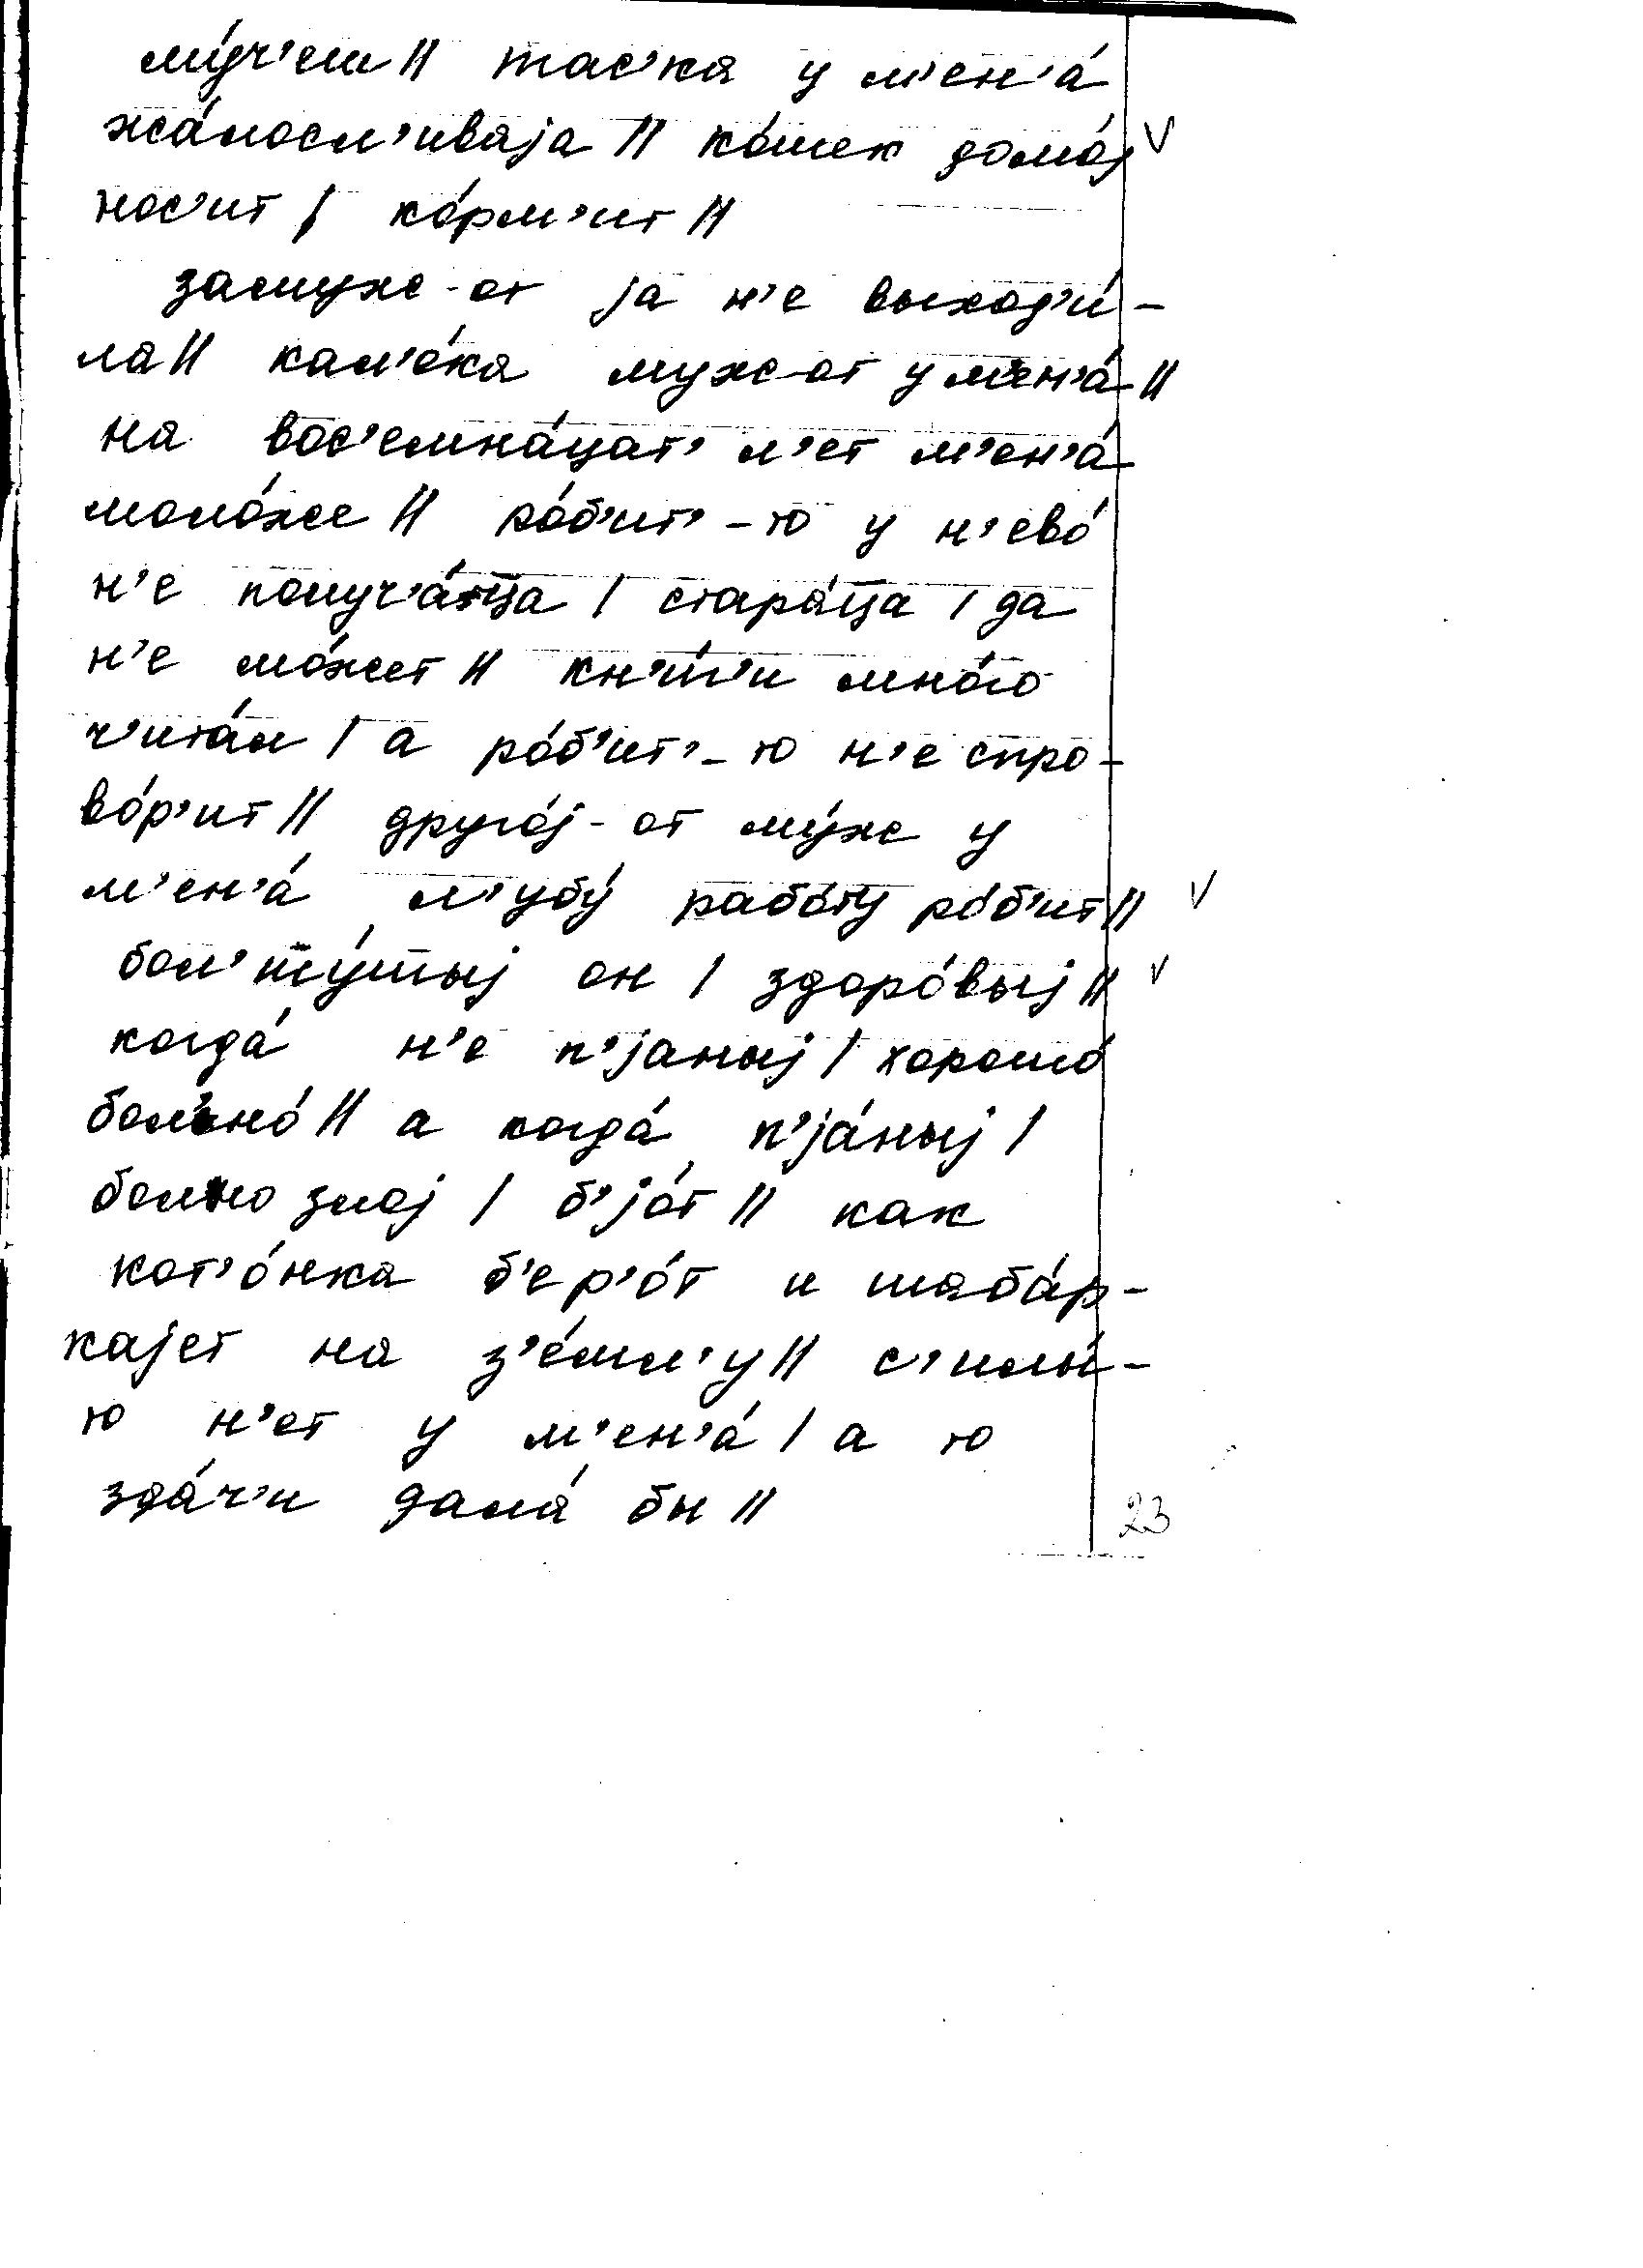 му́ч'еш || тас'ка у м'ен'а́
жа́лосл'иваjа || ко́шек домо́j V
нос'ит | ко́рм'ит ||
замуж-от jа н'е выход'и́-
ла || кал'е́ка муж-от у м'ен'а́ ||
на вос'емна́цат' л'ет м'ен'а́
моло́же || ро́б'ит'-то у н'ево́
н'е получ'а́тца | стара́тца | да
н'е мо́жет || кн'и́г'и мно́го
ч'ита́л | а ро́б'ит'-то н'е спро-
во́р'ит || друго́j-от му́ж у
м'ен'а́ л'убу́ рабо́ту ро́б'ит || V
бол'шу́шыj он | здоро́выj || V
когда́ н'е п'jаныj | хорошо́
бол'но́ || а когда́ п'jа́ныj |
болно злоj | б'jо́т || как
кот'о́нка б'ер'о́т и шаба́р-
каjет на з'е́мл'у || с'илы́-
то н'ет у м'ен'а́ | а то
зда́ч'и дала́ бы ||
23